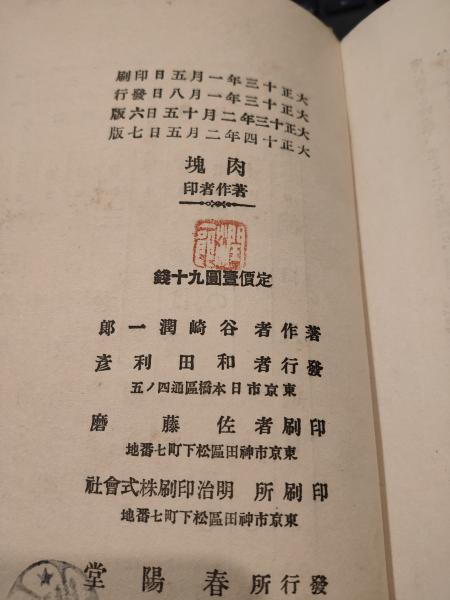 大正十三年一月五日印刷
大正十三年一月八日發行
大正十三年二月十五日六版
大正十四年二月五日七版
肉塊
著作者印
定價壹圓九十錢
著作者 谷崎潤一郎
發行者 和田利彥
東京市日本橋區通四ノ五
印刷者 佐藤磨
東京市神田區松下町七番地
印刷所 明治印刷株式會社
東京市神田區松下町七番地
發行所 春陽堂